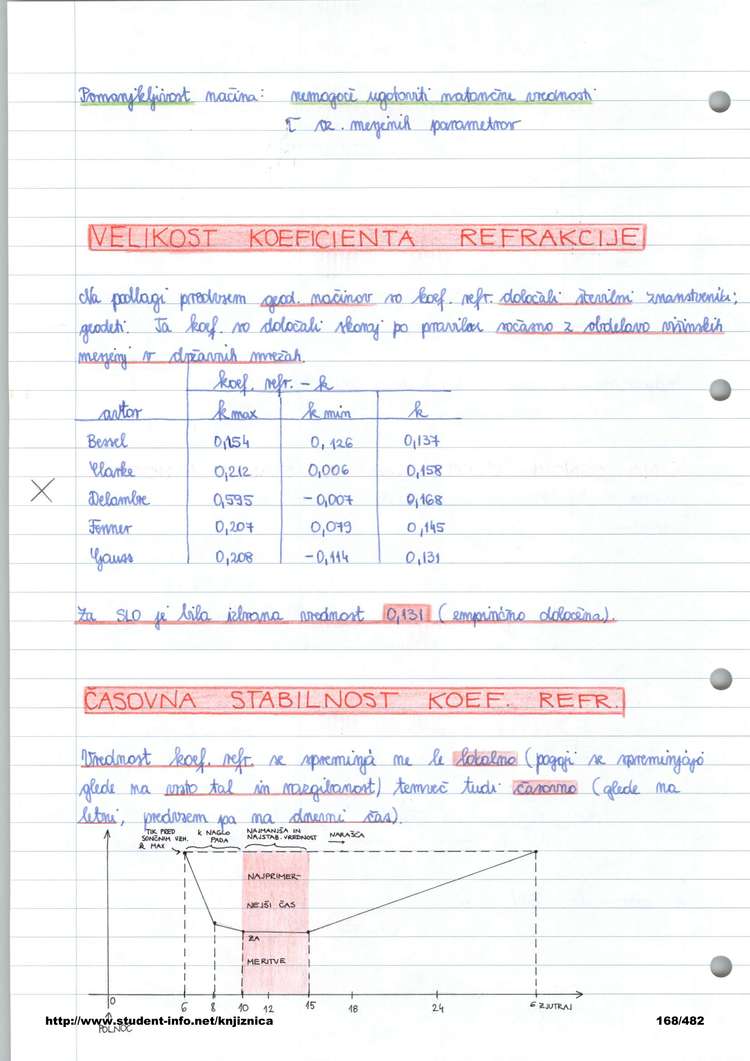 Pomanjkljivost načina: nemogoče ugotoviti natančne vrednosti
τ oz. merjenih parametrov
VELIKOST KOEFICIENTA REFRAKCIJE
Na podlagi predvsem geod. načinov so koef. refr. določali številni znanstveniki,
geodeti. Ta koef. so določali skoraj po pravilu sočasno z obdelavo višinskih
merjenj v državnih mrežah.
koef. refr. - k
avtor k max k min k
Bessel 0,154 0,126 0,137
Clarke 0,212 0,006 0,158
Delambre 0,595 -0,007 0,168
Fenner 0,207 0,079 0,145
Gauss 0,208 -0,114 0,131
Za SLO je bila izbrana vrednost 0,131 (empirično določena).
ČASOVNA STABILNOST KOEF. REFR.
Vrednost koef. refr. se spreminja ne le lokalno (pogoji se spreminjajo
glede na vrsto tal in razgibanost) temveč tudi časovno (glede na
letni, predvsem pa na dnevni čas).
TIK PRED
SONČNIM VZH.
k MAX
K NAGLO
PADA
NAJMANJŠA IN
NAJSTAB. VREDNOST
NARAŠČA
NAJPRIMER-
NEJŠI ČAS
ZA
MERITVE
0 6 8 10 12 15 18 24 6 ZJUTRAJ
POLNOČ
http://www.student-info.net/knjiznica 168/482